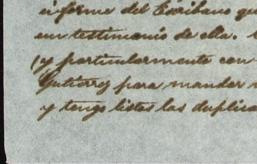 informe del Escribano qu
un testimonio de ella.
(y particularmente con
Gutierrez para mandar
y tengo listos las duplica